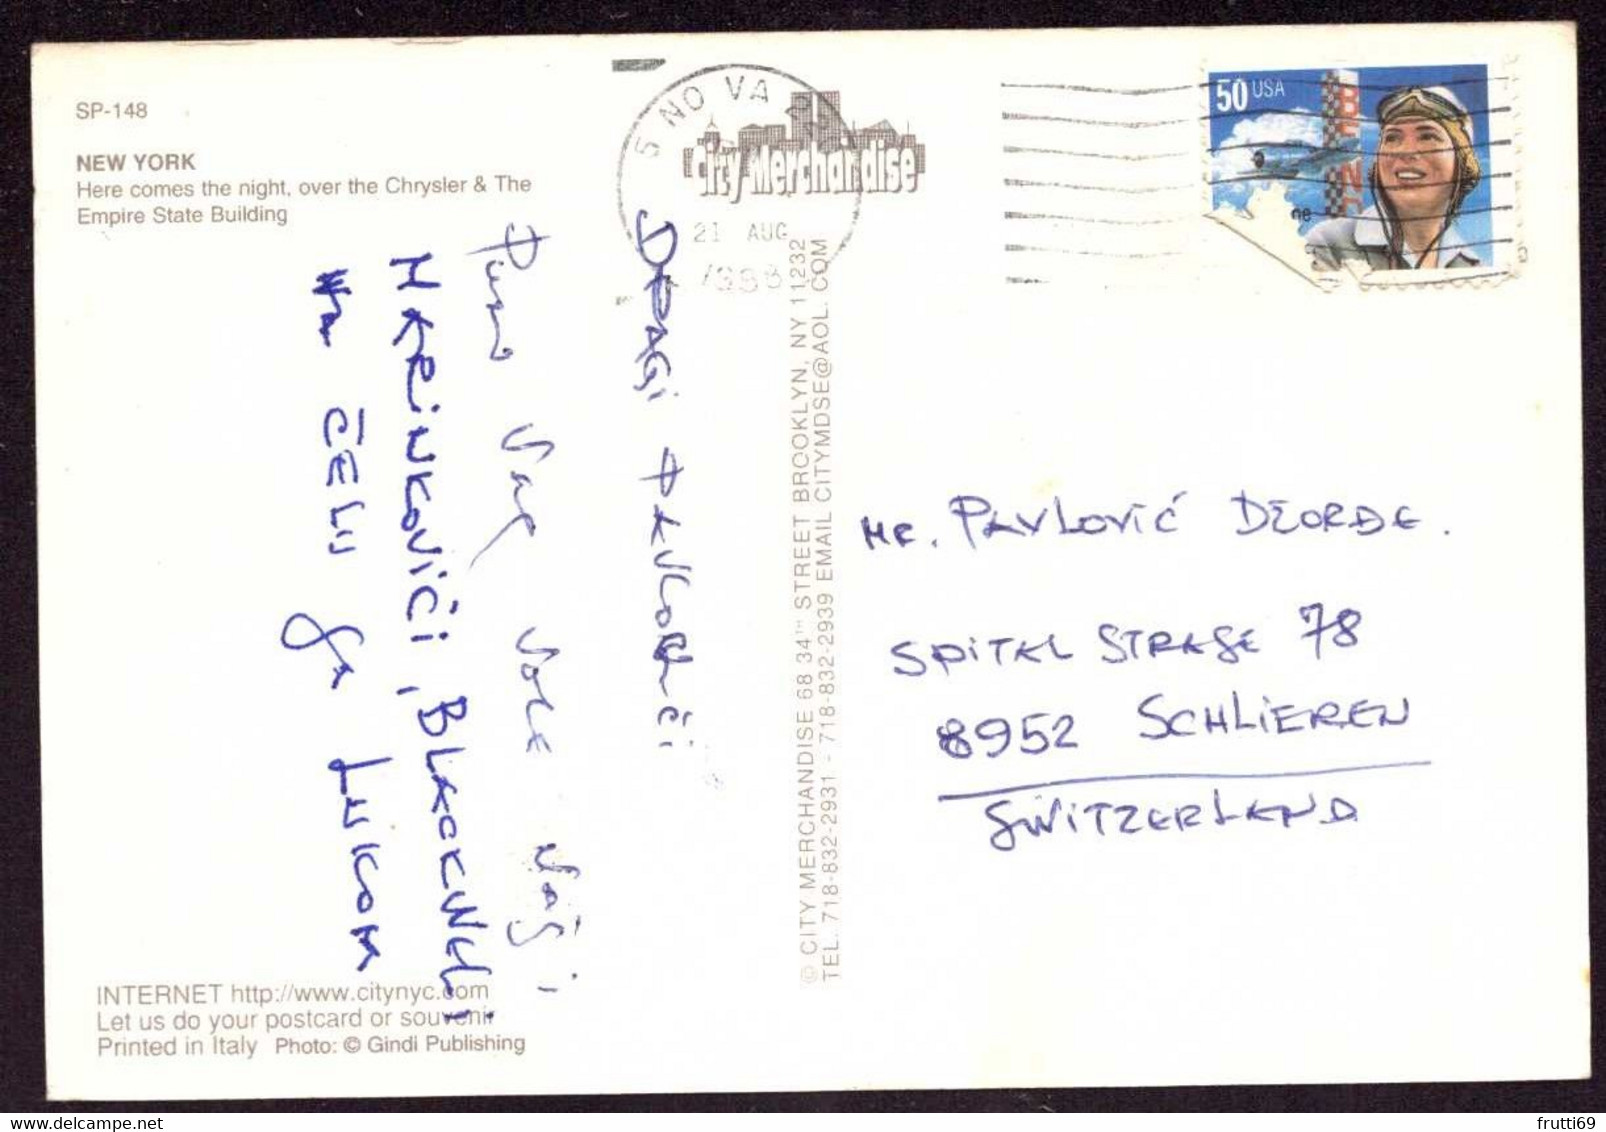 SP-148
NEW YORK
Here comes the night, over the Chrysler & The
Empire State Building
City Merchandise
NO VA
21 AUG
1998
50 USA
DRAGI PAVLOVIĆI
Puno Vas vole Vaši
MARINKOVIĆI,
na ČELU sa LUKOM
© CITY MERCHANDISE 68 34TH STREET BROOKLYN, NY 11232
TEL. 718-832-2931 - 718-832-2939 EMAIL CITYMDSE@AOL.COM
MR. PAVLOVIĆ
SPITAL STRASE 78
8952 SCHLIEREN
SWITZERLAND
INTERNET http://www.citynyc.com
Let us do your postcard or souvenir
Printed in Italy Photo: © Gindi Publishing
frutti69